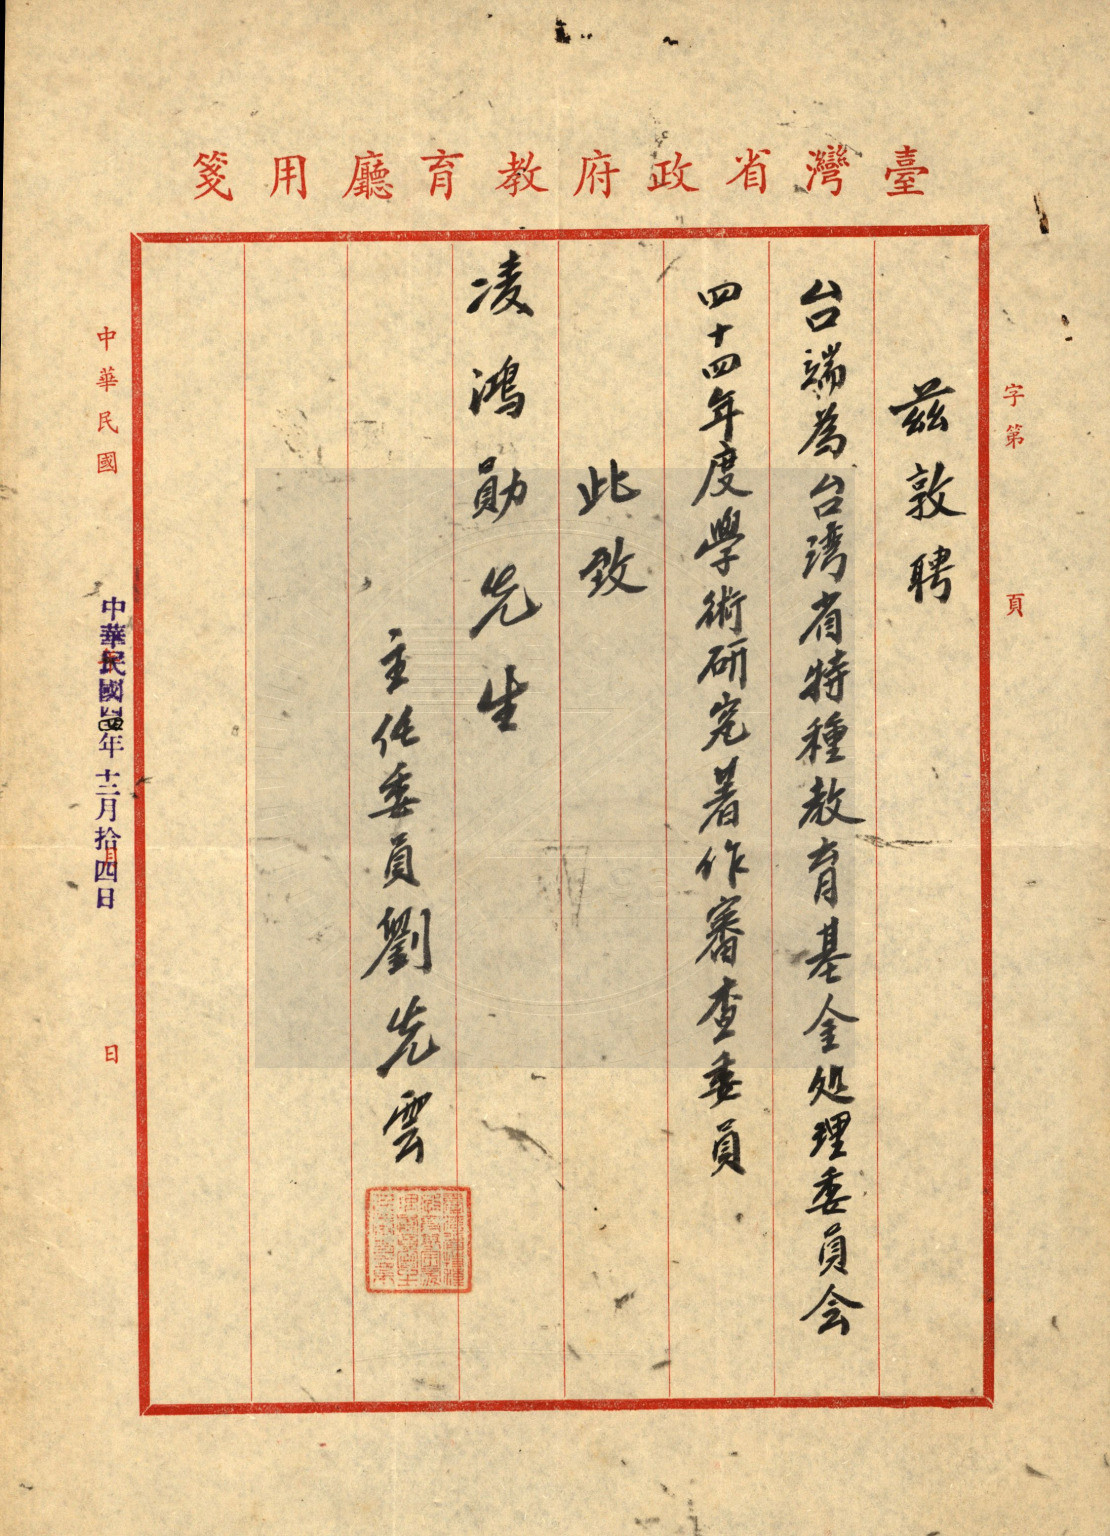 臺灣省政府教育廳用箋
字第 頁
茲敦聘
台端為台湾省特種教育基金処理委員会
四十四年度學術研究著作審查委員
此致
凌鴻勛先生
主任委員劉先雲
中華民國 日
中華民國四四年十二月拾四日